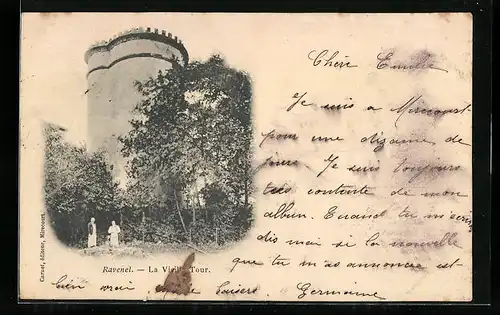 Chère Emilie
Je suis a Mirecourt
pour une dizaine de
jours Je suis toujours
très contente de mon
album. Quand tu m'écriras
dis moi si la nouvelle
que tu m'as annoncée est-
bien vrai baisers. Germaine
Ravenel. — La Vieille Tour.
Carnet, éditeur, Mirecourt.